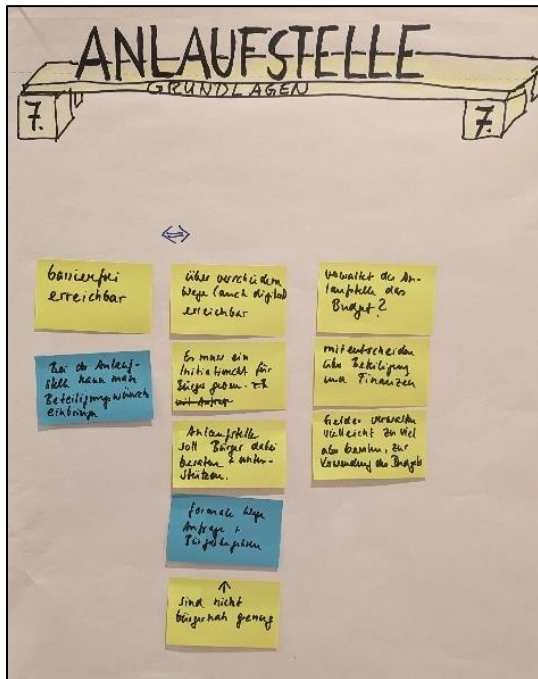 ANLAUFSTELLE
GRUNDLAGEN
7.
7.
barrierefrei
erreichbar
Bei der Anlauf-
stelle kann man
Beteiligungswünsche
einbringen
über verschiedene
Wege (auch digital)
erreichbar
Es muss ein
Initiativrecht für
Bürger geben. z.B.
mit Antrag
Anlaufstelle
soll Bürger dabei
beraten + unter-
stützen.
formale Wege
Anfrage +
Bürgerbegehren
↑
sind nicht
bürgernah genug
verwaltet die An-
laufstelle das
Budget?
mitentscheiden
über Beteiligung
und Finanzen
Gelder verwalten
vielleicht zu viel
aber beraten, zur
Verwendung des Budgets